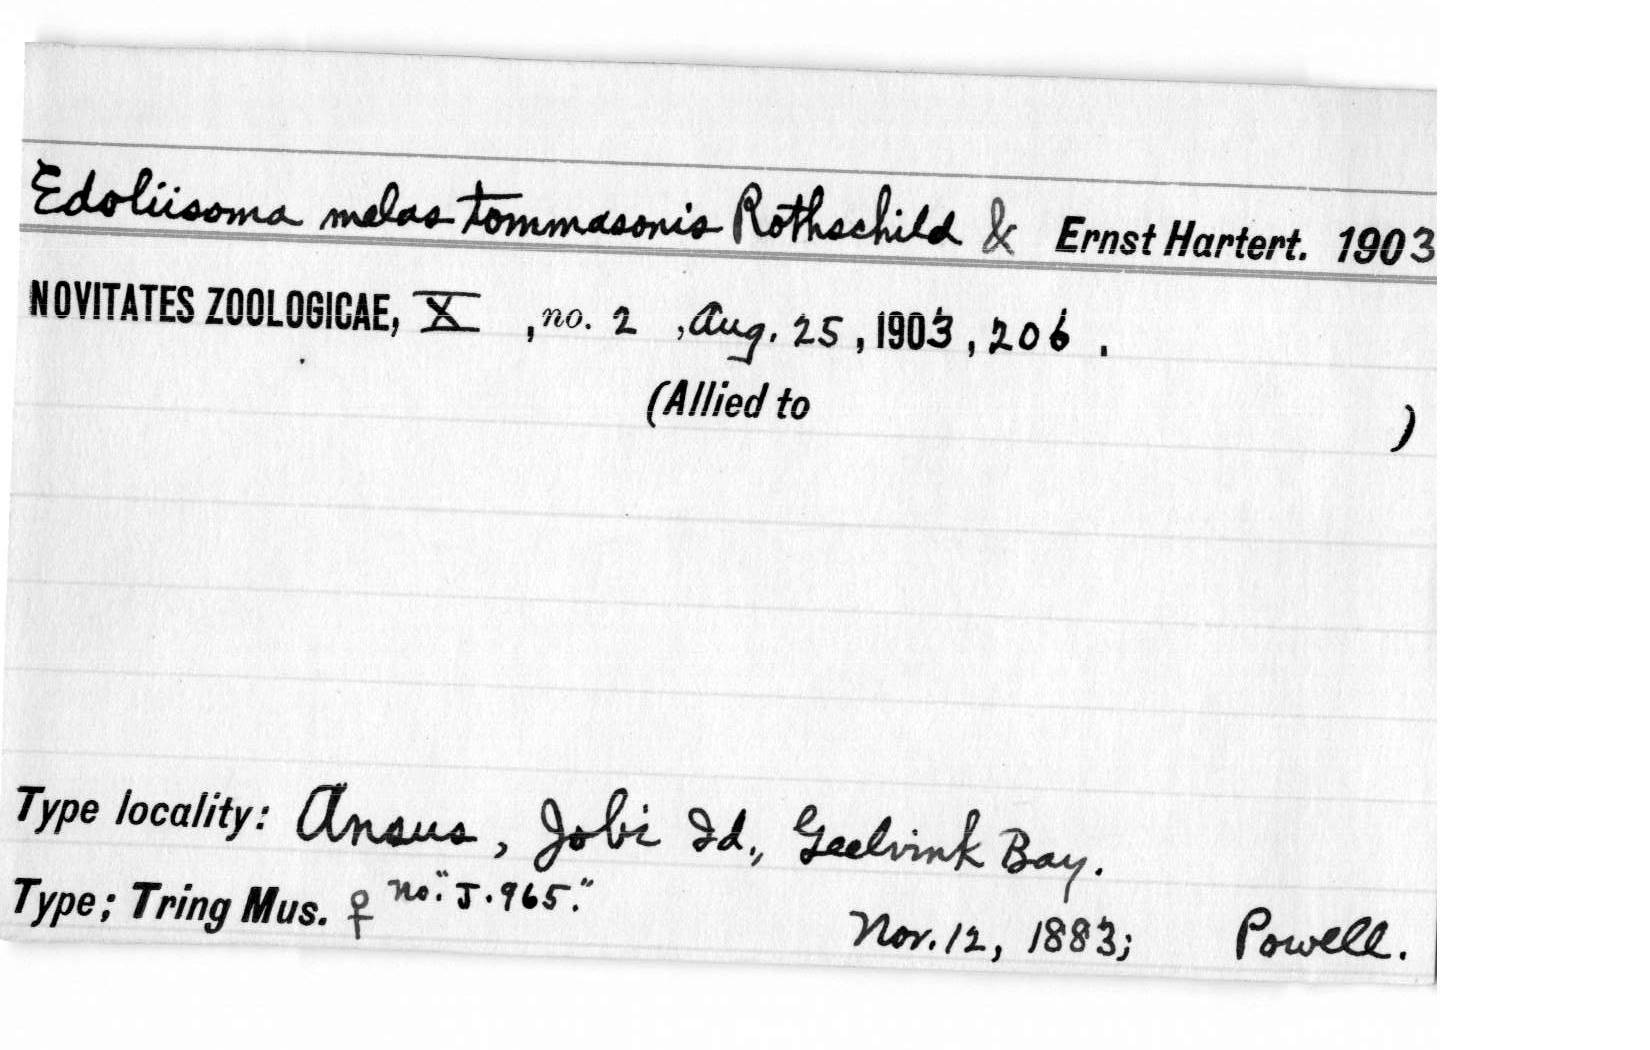 Edoliisoma melas tommasonis Rothschild & Ernst Hartert. 1903
NOVITATES ZOOLOGICAE, X , no. 2 , Aug. 25 , 1903 , 206 .
(Allied to )
Type locality: Ansus, Jobi Id., Geelvink Bay.
Type; Tring Mus. ♀ no. "J.965." Nov. 12, 1883; Powell.